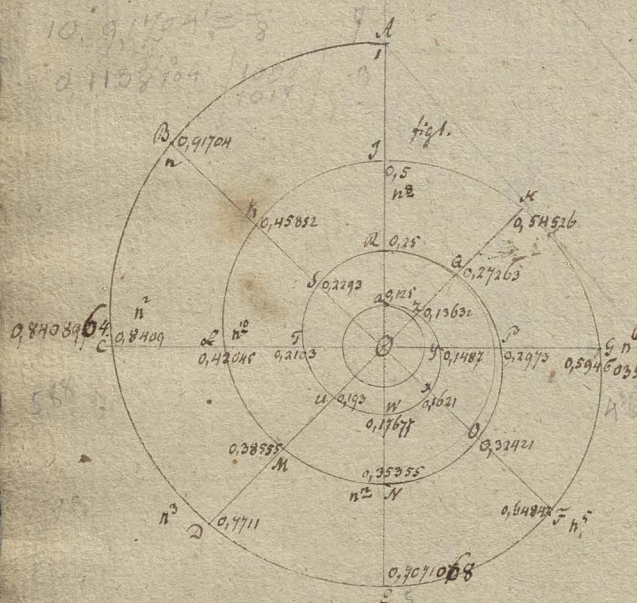 A
1
fig1.
B
0,91704
n
I
0,5
n⁸
K
0,45852
H
0,54526
R
0,25
S
0,2293
Q
0,27263
a
0,125
Z
0,13631
n²
0,8409
C
L
n¹⁰
0,42045
T
0,2103
y
0,1487
P
0,2973
G
0,5946
U
0,193
W
0,17677
x
0,1621
O
0,32421
0,38555
M
0,35355
n¹² N
n³
D
0,7711
0,64842
F
n⁵
0,7071068
E